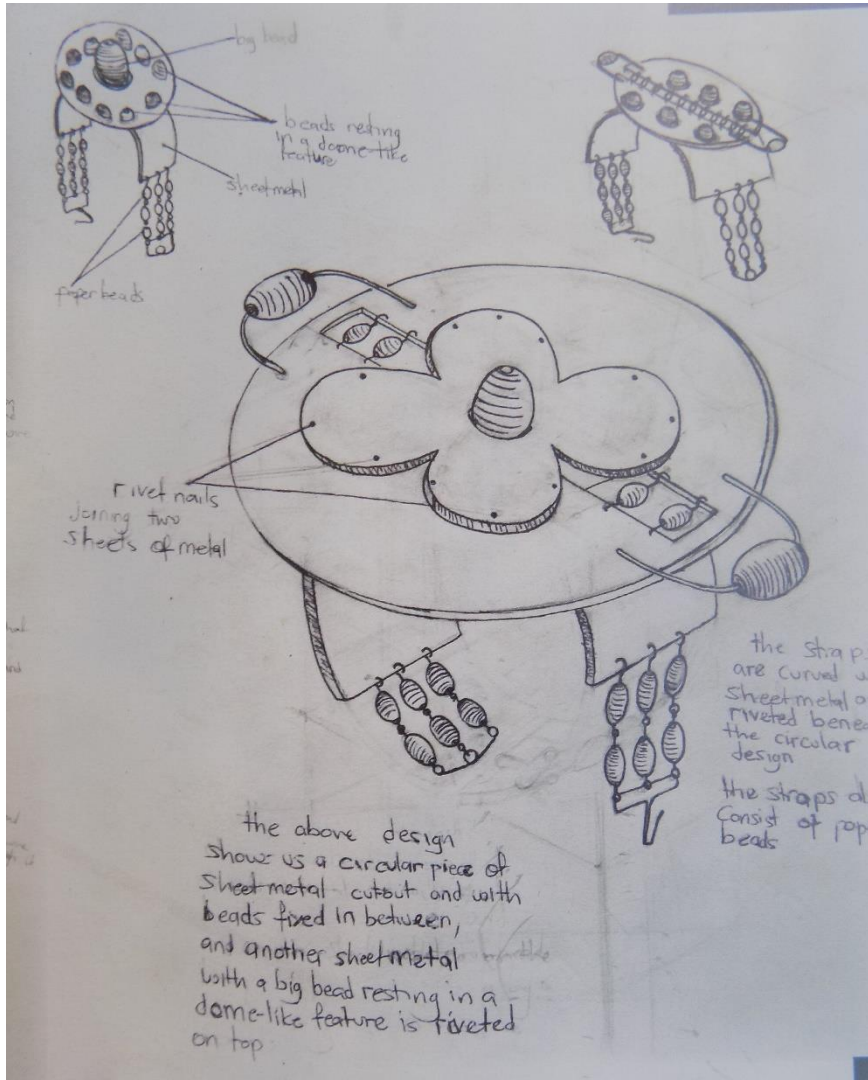 big bead
beads resting
in a doome-like
feature
sheetmetal
paperbeads
rivet nails
joining two
sheets of metal
the strap
are curved
sheetmetal
riveted
the circular
design
the straps
Consist of
beads
the above design
shows us a circular piece of
sheetmetal cutout and with
beads fixed in between,
and another sheetmetal
with a big bead resting in a
dome-like feature is riveted
on top